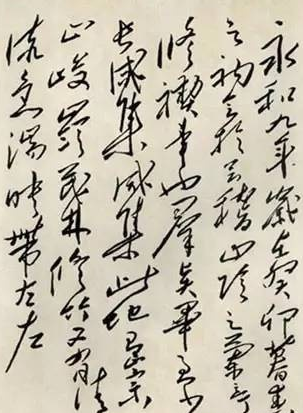 永和九年歲在癸卯暮春
之初會於會稽山陰之蘭亭
修禊事也群賢畢至少
長咸集咸集此地有崇
山峻嶺茂林修竹又有清
流急湍映帶左右